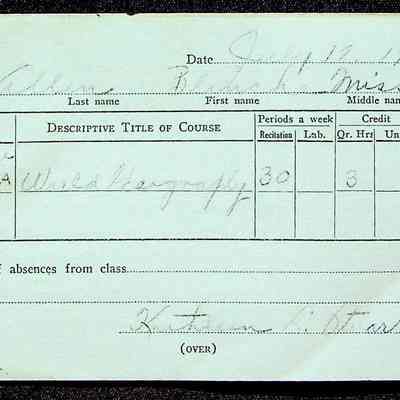 Date July 19, 19
Miss
Last name First name Middle nam
DESCRIPTIVE TITLE OF COURSE Periods a week Credit
Recitation Lab. Qr. Hrs Un
A World Geography 30 3
f absences from class
(OVER)